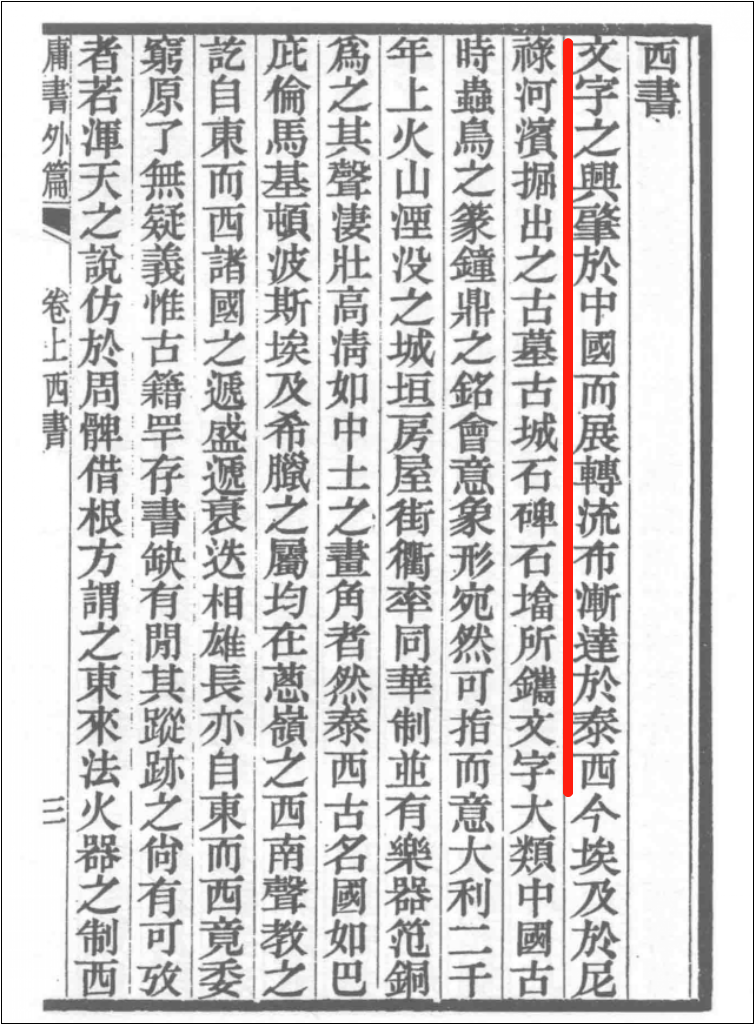 西書
文字之興肇於中國而展轉流布漸達於泰西今埃及於尼
祿河濱掘出之古墓古城石碑石墖所鐫文字大類中國古
時蟲鳥之篆鐘鼎之銘會意象形宛然可指而意大利二千
年上火山湮没之城垣房屋街衢率同華制並有樂器范銅
爲之其聲淒壯高淸如中土之畫角者然泰西古名國如巴
庇倫馬基頓波斯埃及希臘之屬均在蔥嶺之西南聲教之
訖自東而西諸國之遞盛遞衰迭相雄長亦自東而西竟委
窮原了無疑義惟古籍罕存書缺有閒其蹤跡之尙有可攷
者若渾天之說仿於周髀借根方謂之東來法火器之制西
庸書外篇 卷上西書 三